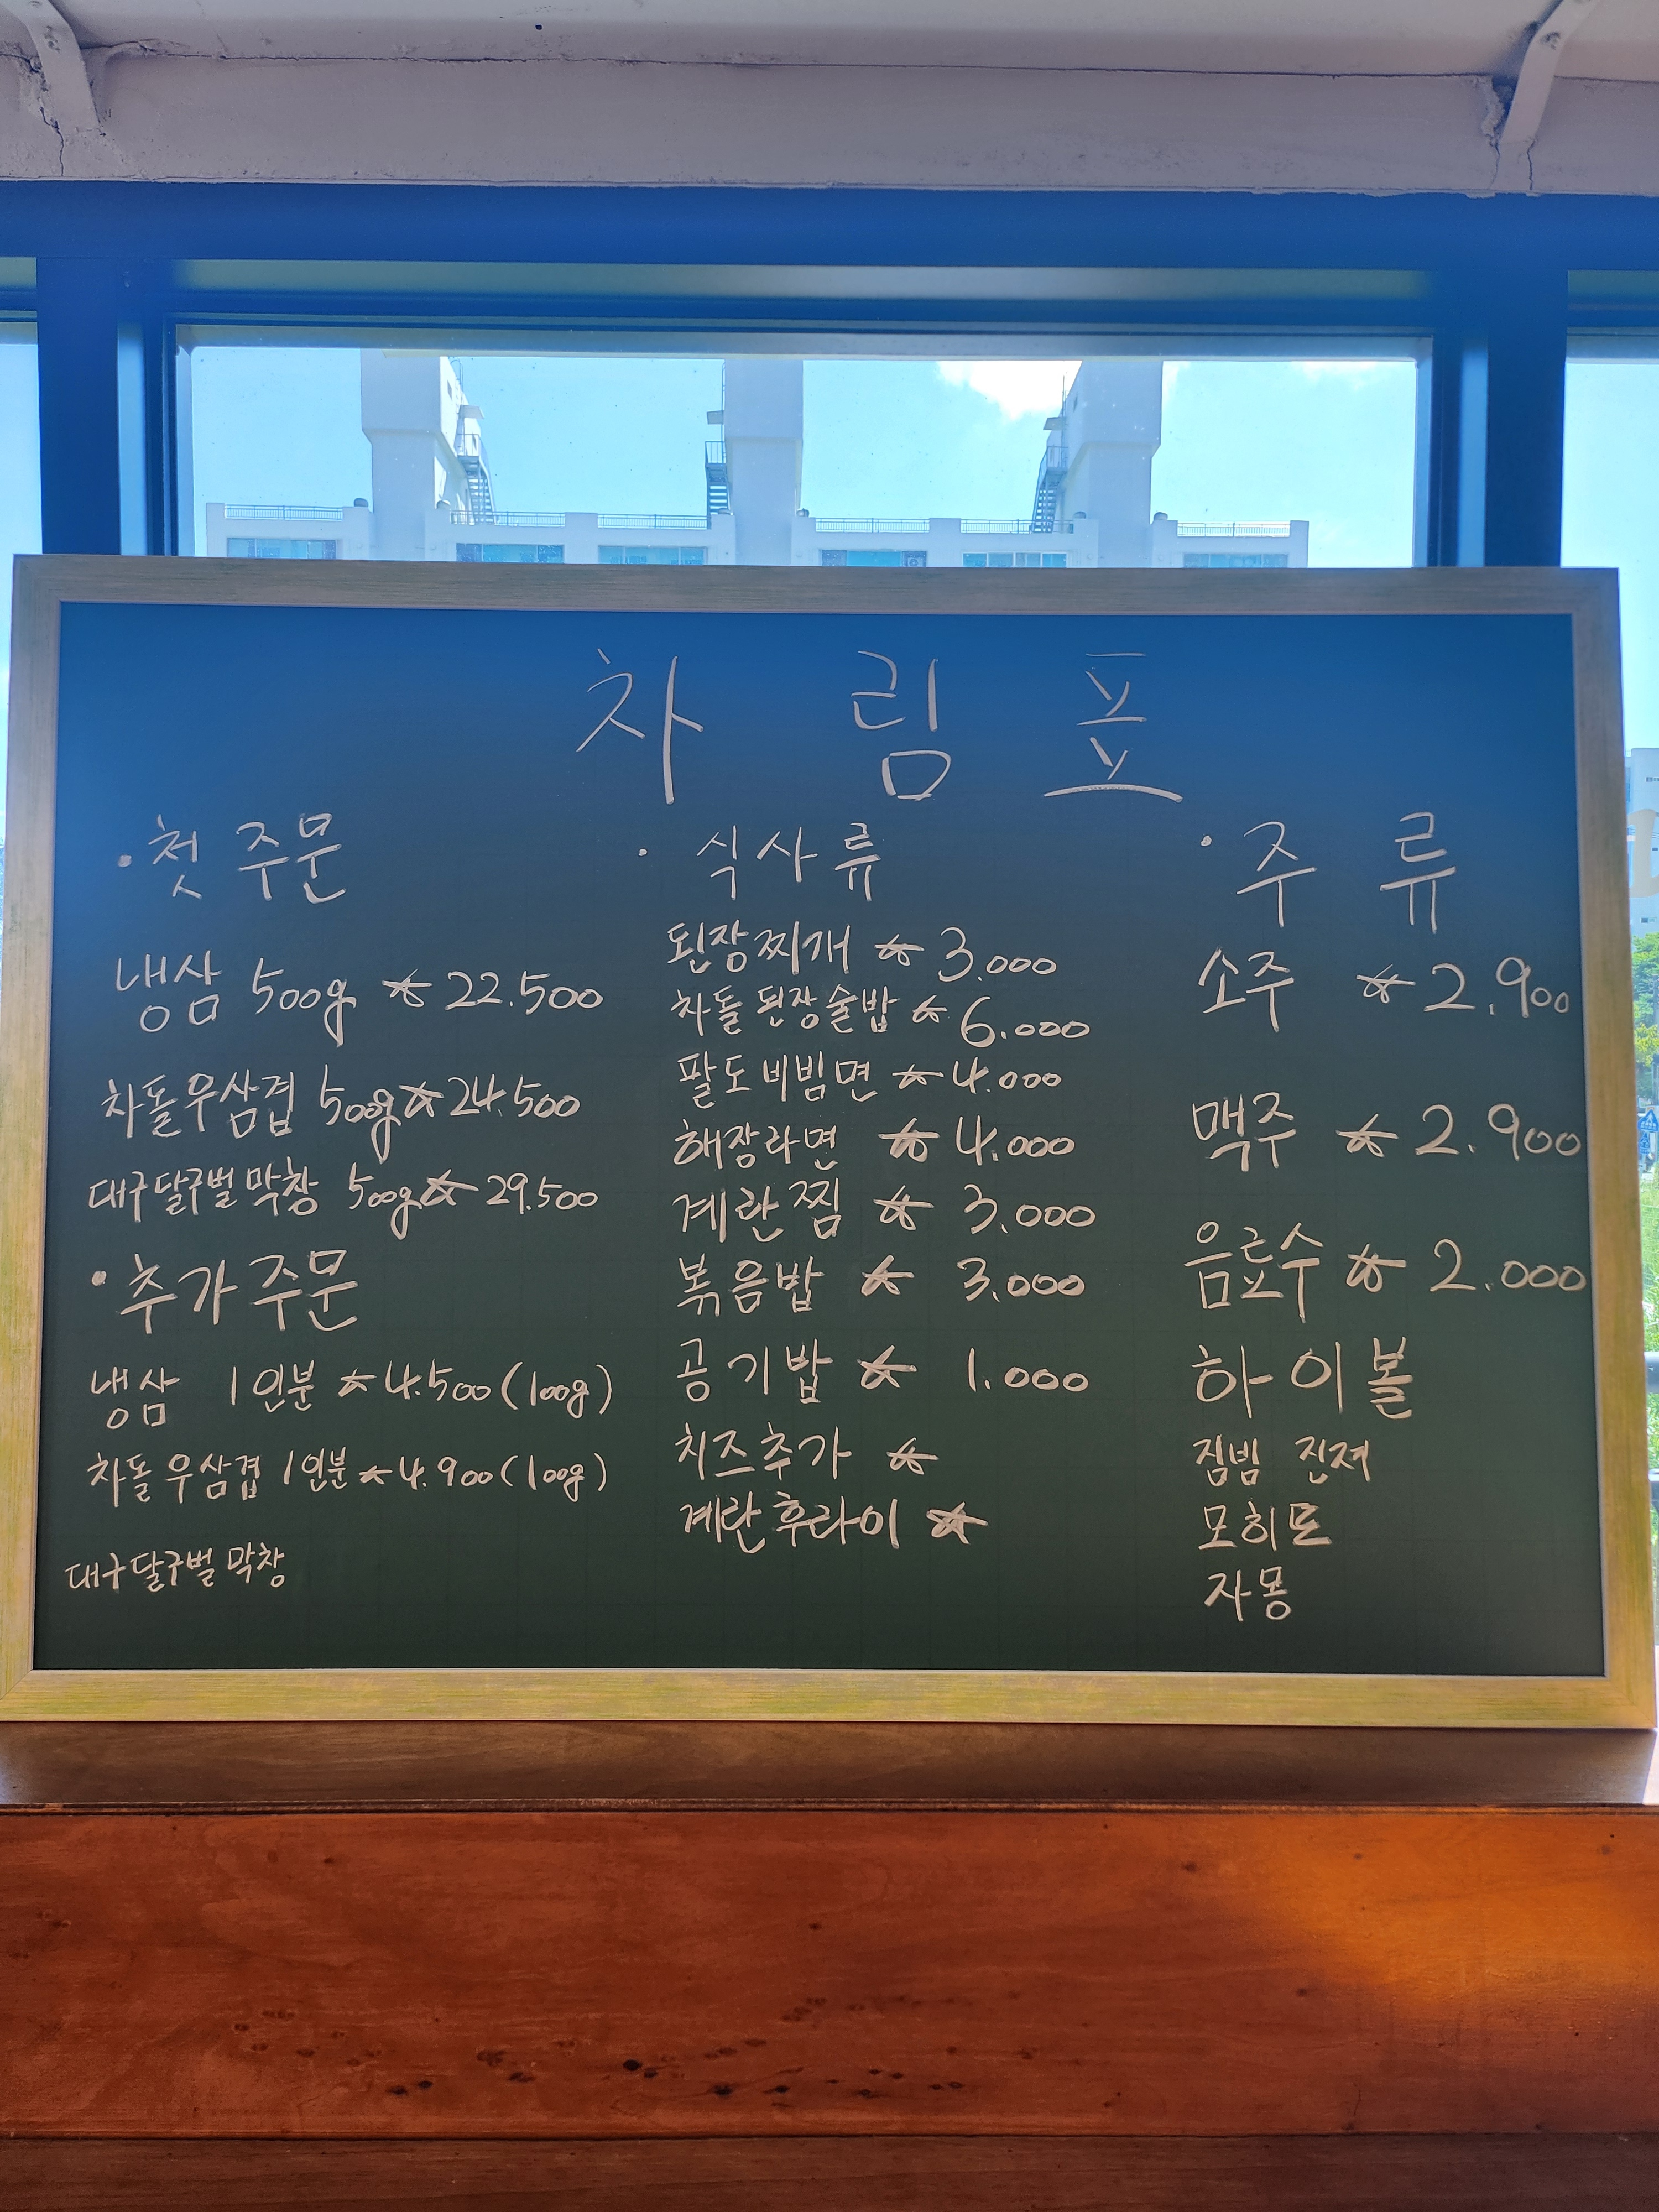 차림표
· 첫주문
냉삼 500g ☆ 22.500
차돌우삼겹 500g ☆ 24.500
대구달구벌막창 500g ☆ 29.500
· 추가주문
냉삼 1인분 ☆ 4.500 (100g)
차돌우삼겹 1인분 ☆ 4.900 (100g)
대구달구벌막창
· 식사류
된장찌개 ☆ 3.000
차돌된장술밥 ☆ 6.000
팔도비빔면 ☆ 4.000
해장라면 ☆ 4.000
계란찜 ☆ 3.000
볶음밥 ☆ 3.000
공기밥 ☆ 1.000
치즈추가 ☆
계란후라이 ☆
· 주류
소주 ☆ 2.900
맥주 ☆ 2.900
음료수 ☆ 2.000
하이볼
짐빔 진저
모히토
자몽